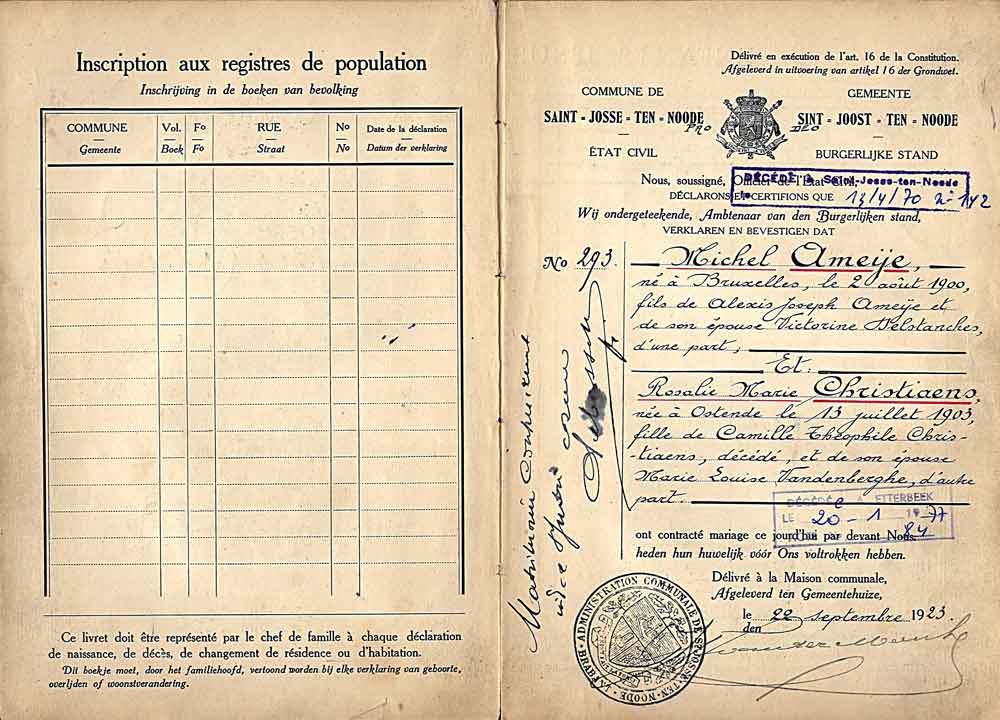 Inscription aux registres de population
Inschrijving in de boeken van bevolking
COMMUNE Vol. Fo RUE No Date de la déclaration
Gemeente Boek Fo Straat No Datum der verklaring
Ce livret doit être représenté par le chef de famille à chaque déclaration
de naissance, de décès, de changement de résidence ou d'habitation.
Dit boekje moet, door het familiehoofd, vertoond worden bij elke verklaring van geboorte,
overlijden of woonstverandering.
Délivré en exécution de l'art. 16 de la Constitution.
Afgeleverd in uitvoering van artikel 16 der Grondwet.
COMMUNE DE GEMEENTE
SAINT-JOSSE-TEN-NOODE SINT-JOOST-TEN-NOODE
PRO DEO
ÉTAT CIVIL BURGERLIJKE STAND
Nous, soussigné, Officier de l'Etat Civil,
DÉCÉDÉ à Saint-Josse-ten-Noode
DÉCLARONS ET CERTIFIONS QUE
le 13/4/70 n° 142
Wij ondergeteekende, Ambtenaar van den Burgerlijken stand,
VERKLAREN EN BEVESTIGEN DAT
No 293. Michel Ameije,
né à Bruxelles, le 2 août 1900,
fils de Alexis Joseph Ameije et
de son épouse Victorine Delstanches,
d'une part,
Et.
Rosalie Marie Christiaens,
née à Ostende le 13 juillet 1903,
fille de Camille Théophile Chris-
-tiaens, décédé, et de son épouse
Marie Louise Vandenberghe, d'autre
part.
DÉCÉDÉe A ETTERBEEK
LE 20-1 1977
84
ont contracté mariage ce jourd'hui par devant Nous.
heden hun huwelijk vóór Ons voltrokken hebben.
Délivré à la Maison communale,
Afgeleverd ten Gemeentehuize,
le 22 septembre 1923
den
ADMINISTRATION COMMUNALE DE ST JOSSE-TEN-NOODE
BRABANT